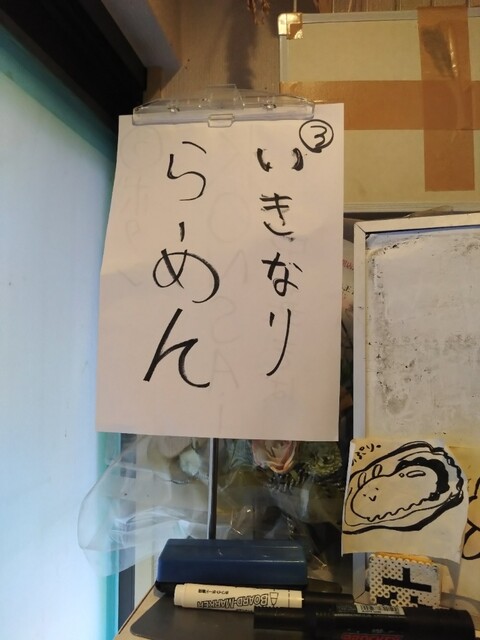 ③
いきなり
らーめん
ぷり。
BOARD-MARKER